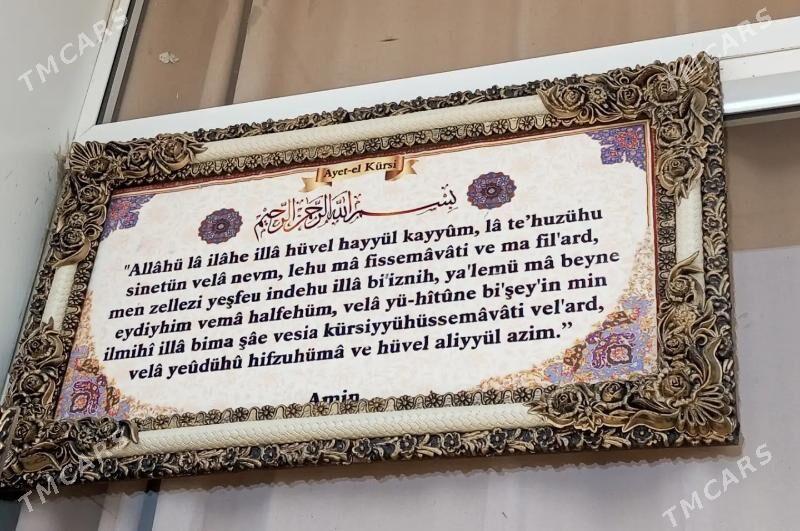 Ayet-el Kürsi
بسم الله الرحمن الرحيم
"Allâhü lâ ilâhe illâ hüvel hayyül kayyûm, lâ te’huzühu
sinetün velâ nevm, lehu mâ fissemâvâti ve ma fil'ard,
men zellezi yeşfeu indehu illâ bi'iznih, ya'lemü mâ beyne
eydiyhim vemâ halfehüm, velâ yü-hîtûne bi'şey'in min
ilmihî illâ bima şâe vesia kürsiyyühüssemâvâti vel'ard,
velâ yeûdühû hifzuhümâ ve hüvel aliyyül azim.’’
Amin
TMCARS
TMCARS
TMCARS
TMCARS